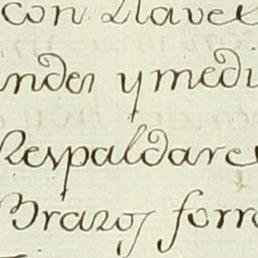 con Llave
ndes y medi
Respaldare
Brazos forr